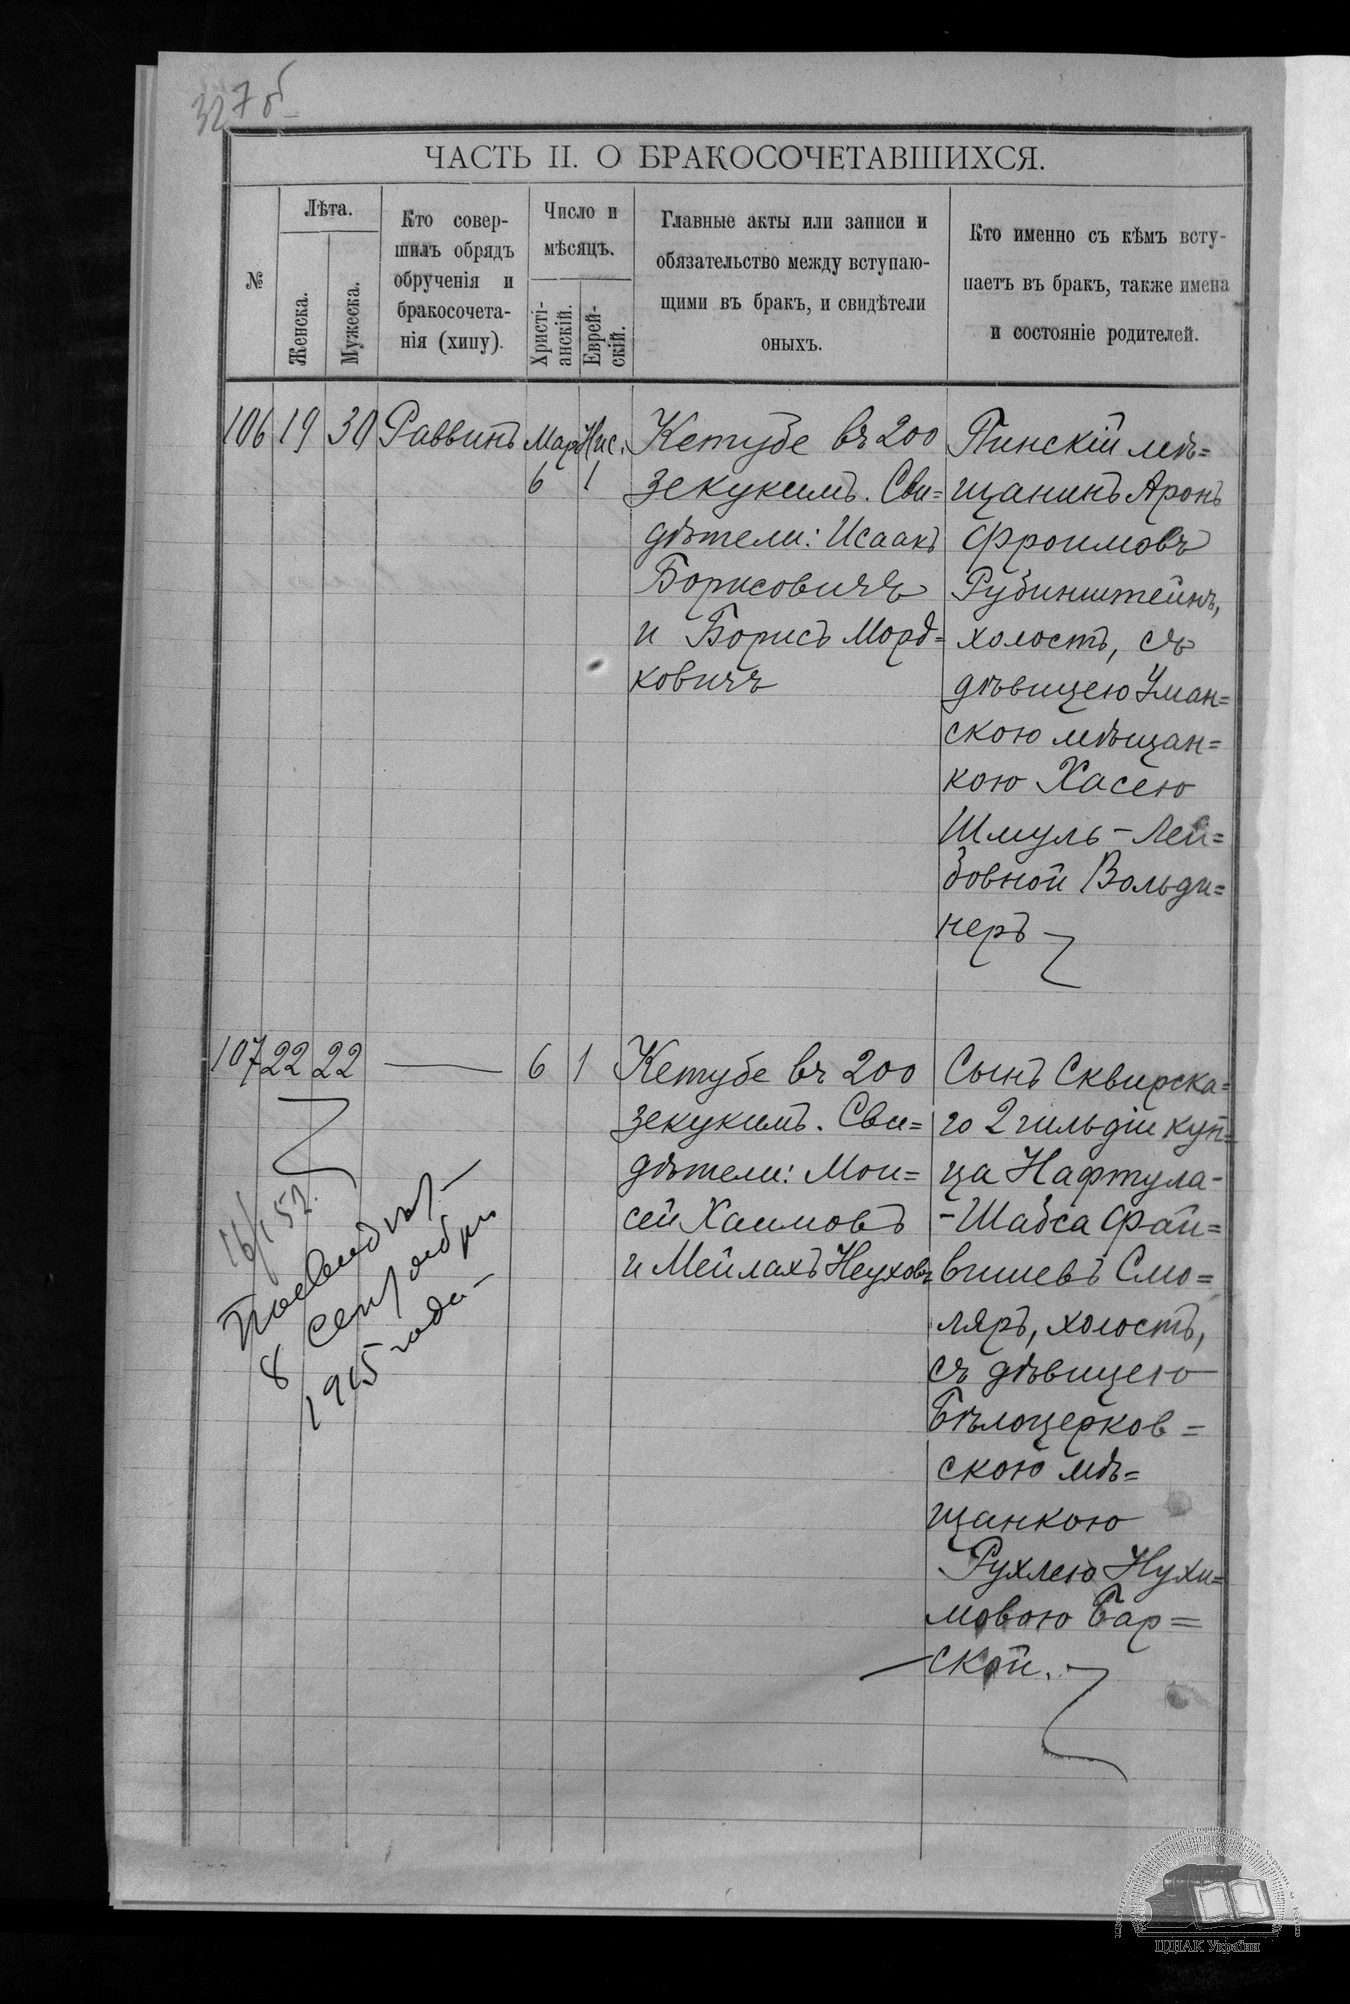 327 об
ЧАСТЬ II. О БРАКОСОЧЕТАВШИХСЯ.
№
Лѣта.
Женска.
Мужеска.
Кто совер-
шилъ обрядъ
обрученія и
бракосочета-
нія (хипу).
Число и
мѣсяцъ.
Христі-
анскій.
Еврей-
скій.
Главные акты или записи и
обязательство между вступаю-
щими въ бракъ, и свидѣтели
оныхъ.
Кто именно съ кѣмъ всту-
паетъ въ бракъ, также имена
и состояніе родителей.
106 19 30 Раввинъ Мар. Нис.
6 1
Кетубе въ 200
зекукимъ. Сви=
дѣтели: Исаакъ
Борисовичъ
и Борисъ Морд=
ковичъ
Пинскій мѣ=
щанинъ Аронъ
Фроимовъ
Рубинштейнъ,
холостъ, съ
дѣвицею Уман=
скою мѣщан=
кою Хасею
Шмуль-Лей=
бовной Вольди=
неръ
107 22 22 — 6 1
Кетубе въ 200
зекукимъ. Сви=
дѣтели: Мои=
сей Хаимовъ
и Мейлахъ Неуховъ
Сынъ Сквирска=
го 2 гильдіи куп=
ца Нафтула-
-Шабса Фай=
вишевъ Смо=
ляръ, холостъ,
съ дѣвицею
Бѣлоцерков=
скою мѣ=
щанкою
Рухлею Нухи=
мовою Бар=
ской.
8 сентября
1915 года
ЦДІАК України